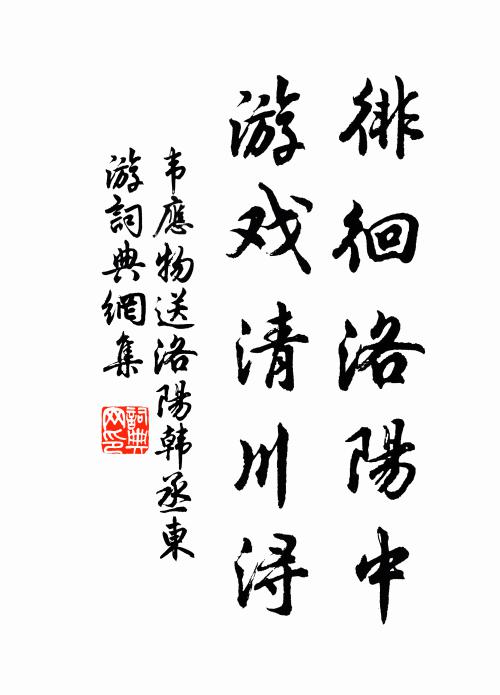 徘徊洛陽中
游戏清川浔
韦應物送洛陽韩丞東
游詞典網集
詞典網印